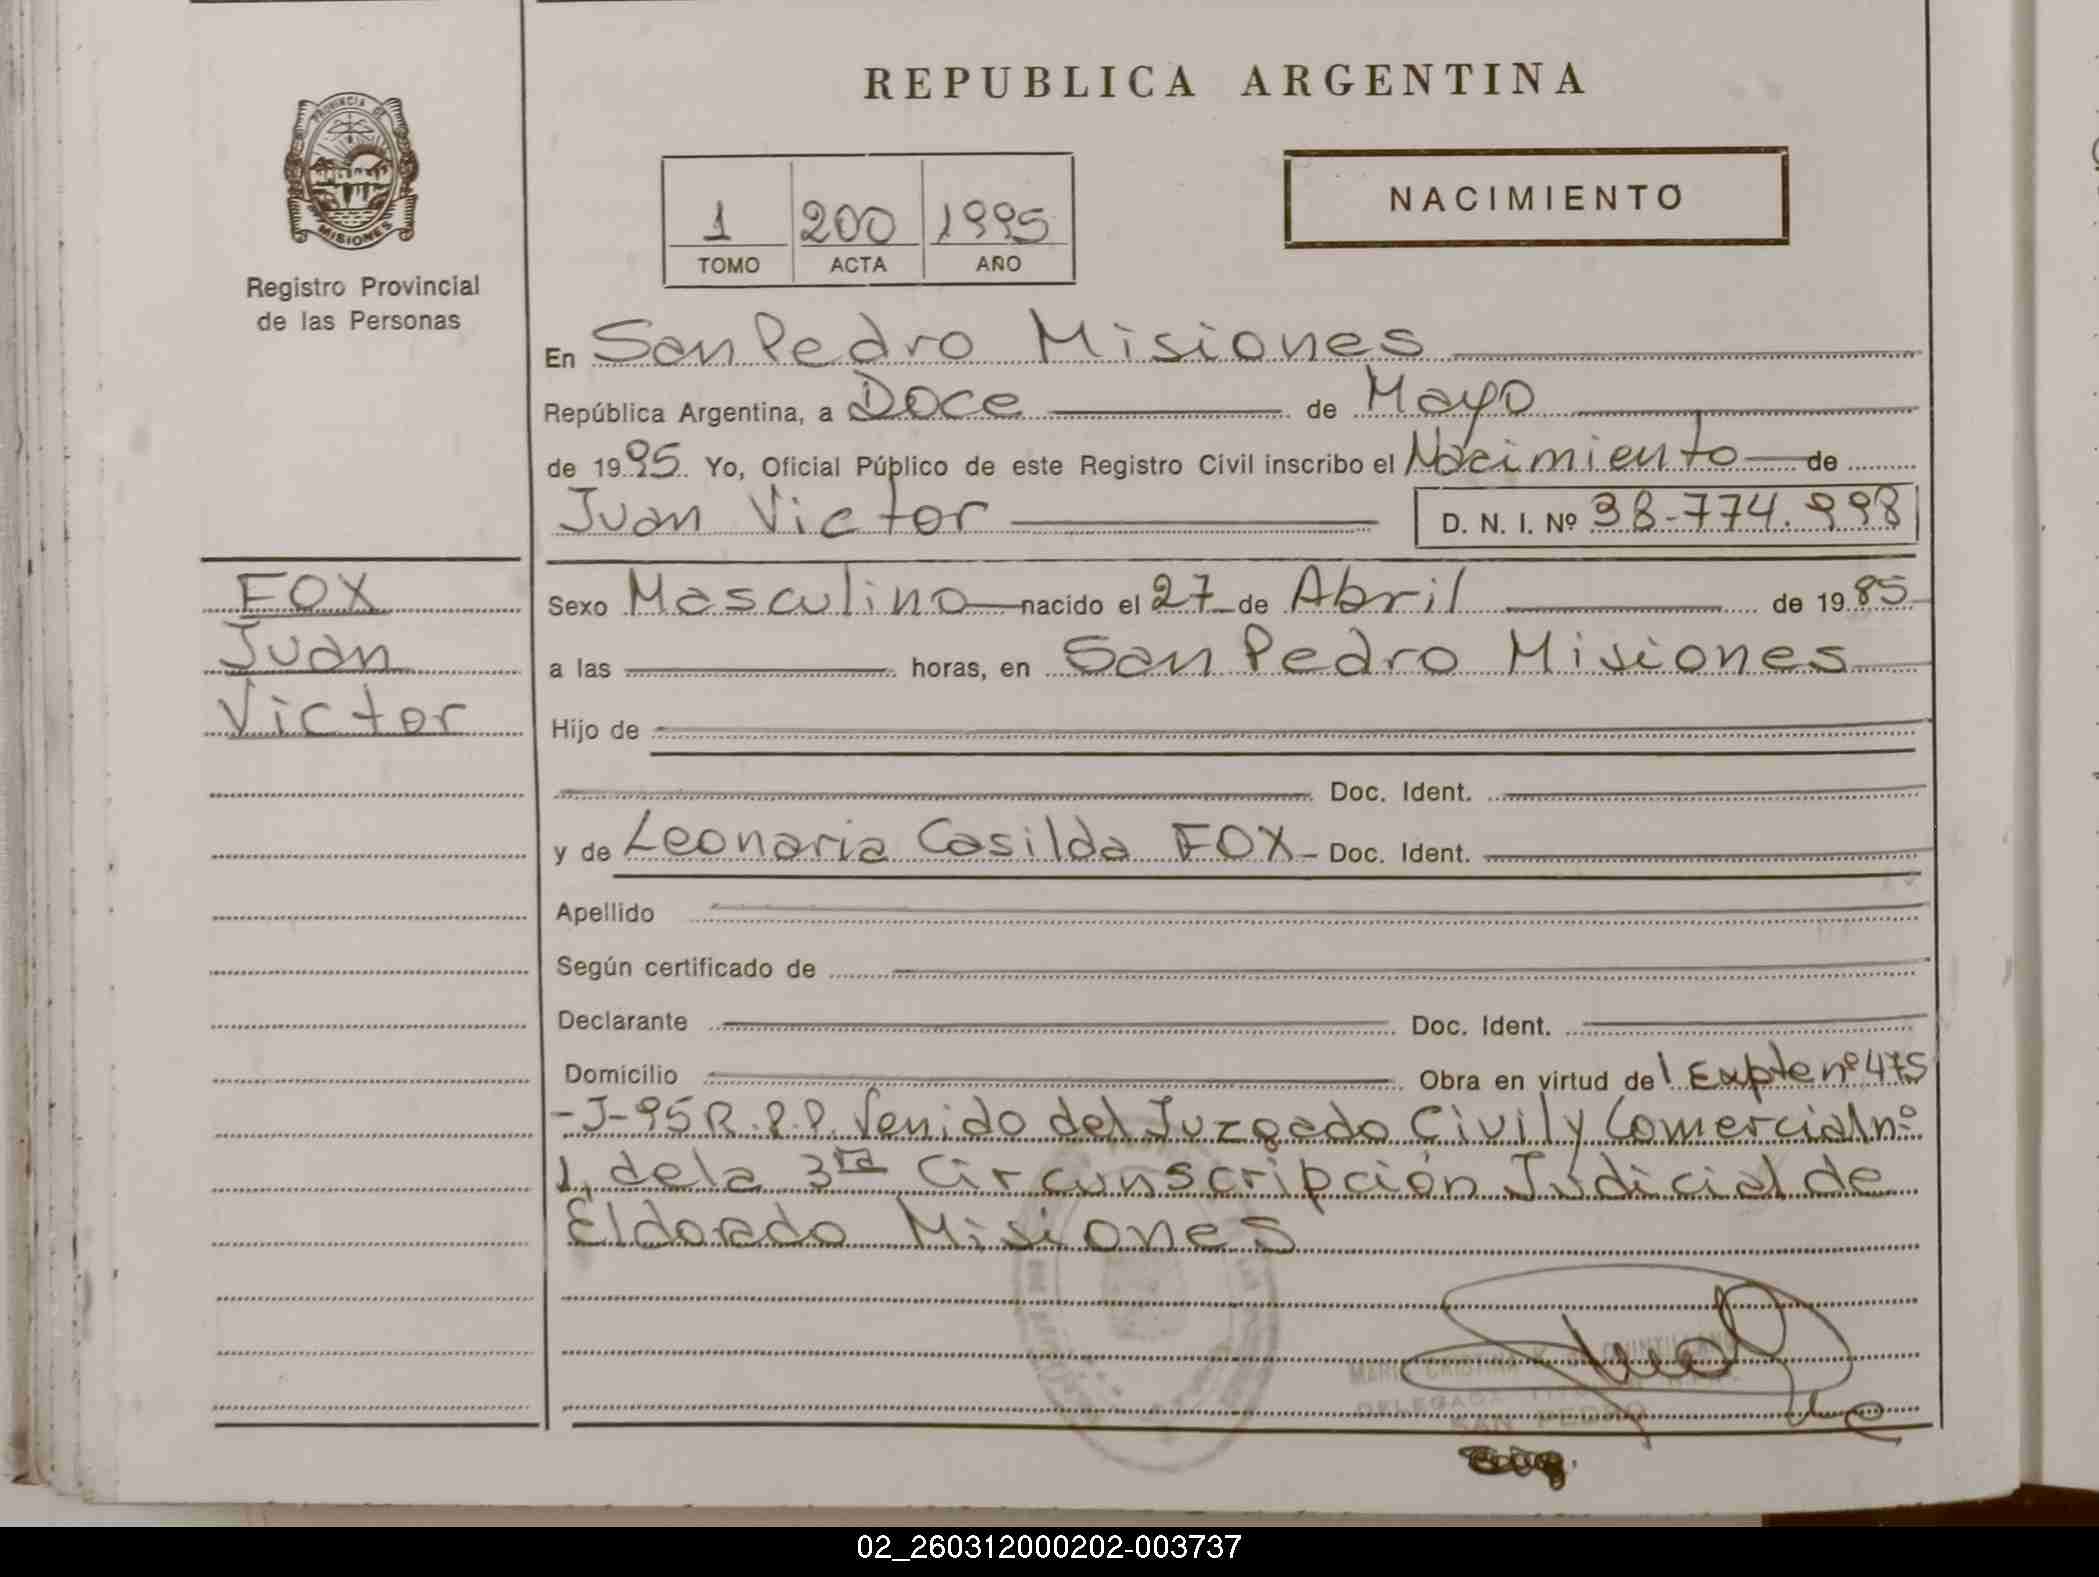 REPUBLICA ARGENTINA
PROVINCIA DE
MISIONES
Registro Provincial
de las Personas
1 200 1995
TOMO ACTA AÑO
NACIMIENTO
En San Pedro Misiones
República Argentina, a Doce de Mayo
de 1995. Yo, Oficial Público de este Registro Civil inscribo el Nacimiento de
Juan Victor D. N. I. Nº 38-774.998
FOX
Juan
Victor
Sexo Masculino nacido el 27 de Abril de 1985
a las horas, en San Pedro Misiones
Hijo de
Doc. Ident.
y de Leonaria Casilda FOX - Doc. Ident.
Apellido
Según certificado de
Declarante Doc. Ident.
Domicilio Obra en virtud del Expte nº 475
-J-95 R.P.P. Venido del Juzgado Civil y Comercial nº
1, de la 3ra Circunscripción Judicial de
Eldorado Misiones
MARIA CRISTINA
DELEGADA TITULAR
SAN PEDRO
02_260312000202-003737